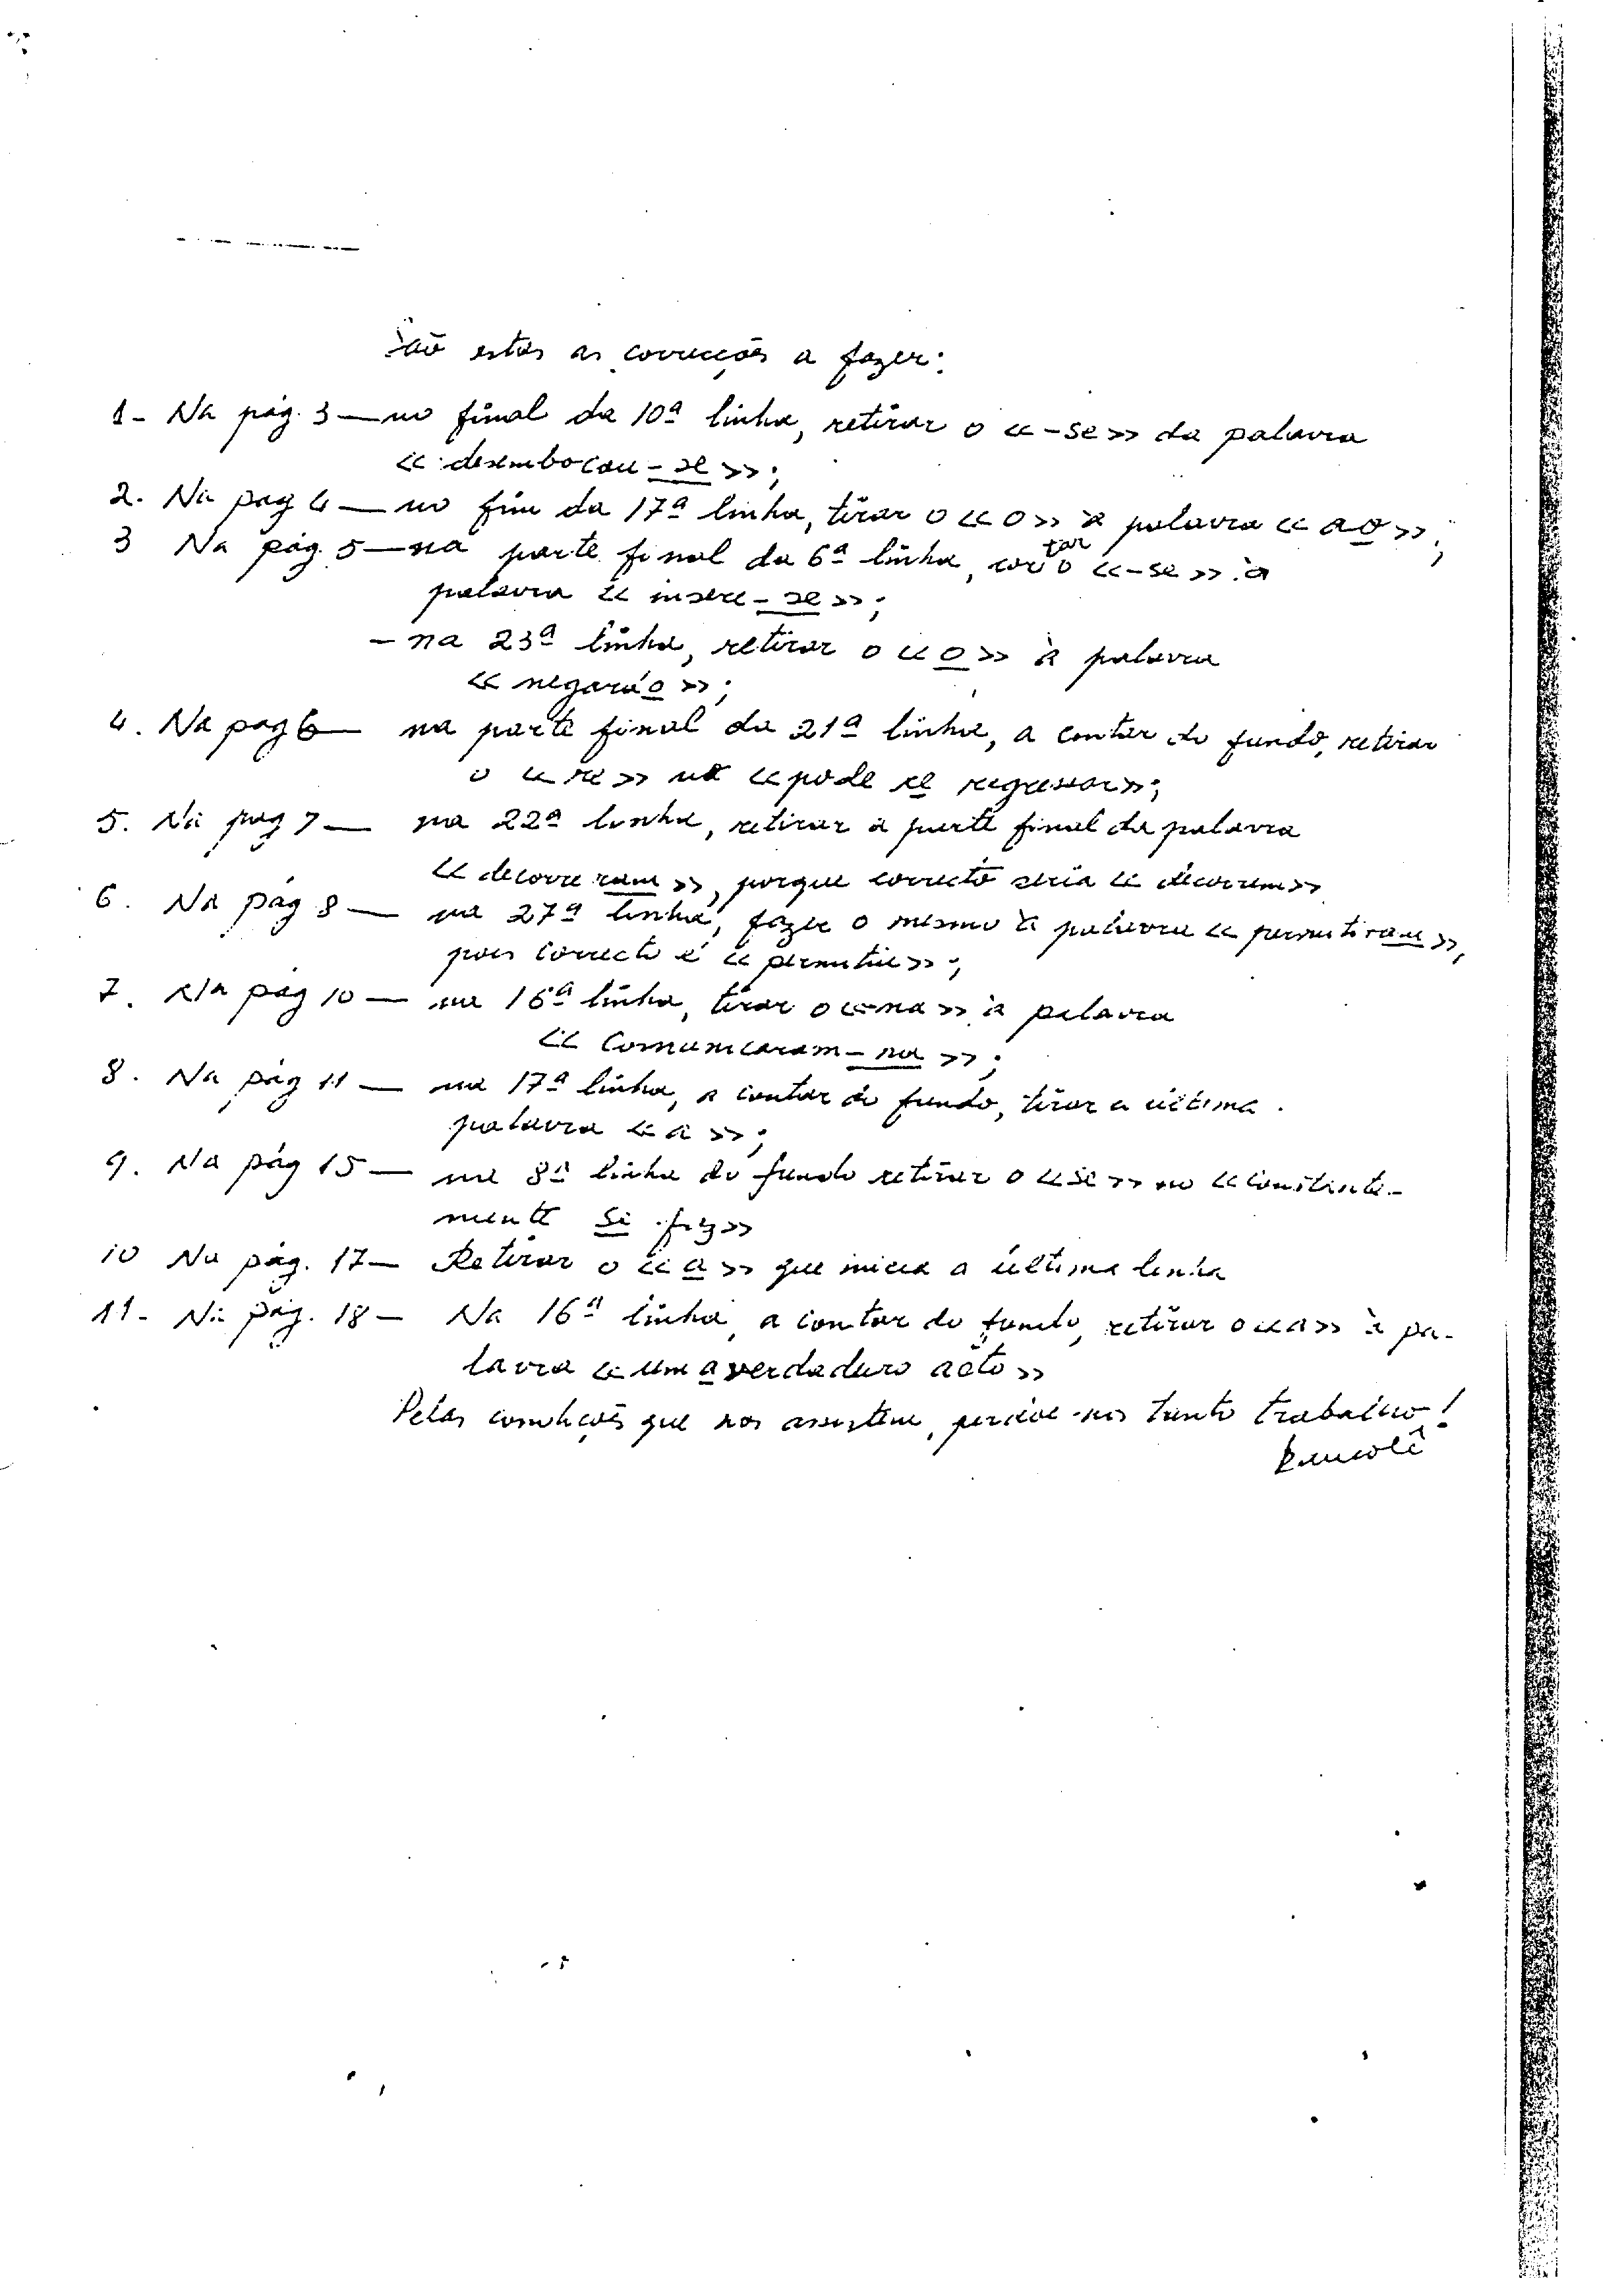 São estas as correcções a fazer:
1- Na pág. 3 — no final da 10ª linha, retirar o «-se» da palavra
«desembocou-se»;
2. Na pag 4 — no fim da 17ª linha, tirar o «o» à palavra «ao»;
3 Na pág. 5 — na parte final da 6ª linha, cortar o «-se» à
palavra «insere-se»;
- na 23ª linha, retirar o «o» à palavra
«negarão»;
4. Na pag 6 — na parte final da 21ª linha, a contar do fundo, retirar
o «se» na «pode se regressar»;
5. Na pag 7 — na 22ª linha, retirar a parte final da palavra
«decorreram», porque correcto seria «decorrem»
6. Na pág 8 — na 27ª linha, fazer o mesmo à palavra «permitiram»,
pois correcto é «permitir»;
7. Na pág 10 — na 16ª linha, tirar o «-na» à palavra
«Comunicaram-na»;
8. Na pág 11 — na 17ª linha, a contar do fundo, tirar a última
palavra «a»;
9. Na pág 15 — na 8ª linha do fundo retirar o «se» no «constante-
mente se fez»
10 Na pág. 17 — Retirar o «a» que inicia a última linha
11- Na pág. 18 — Na 16ª linha, a contar do fundo, retirar o «a» à pa-
lavra «uma verdadeiro acto»
Pelas condições que nos assistem, perdoe-nos tanto trabalho!